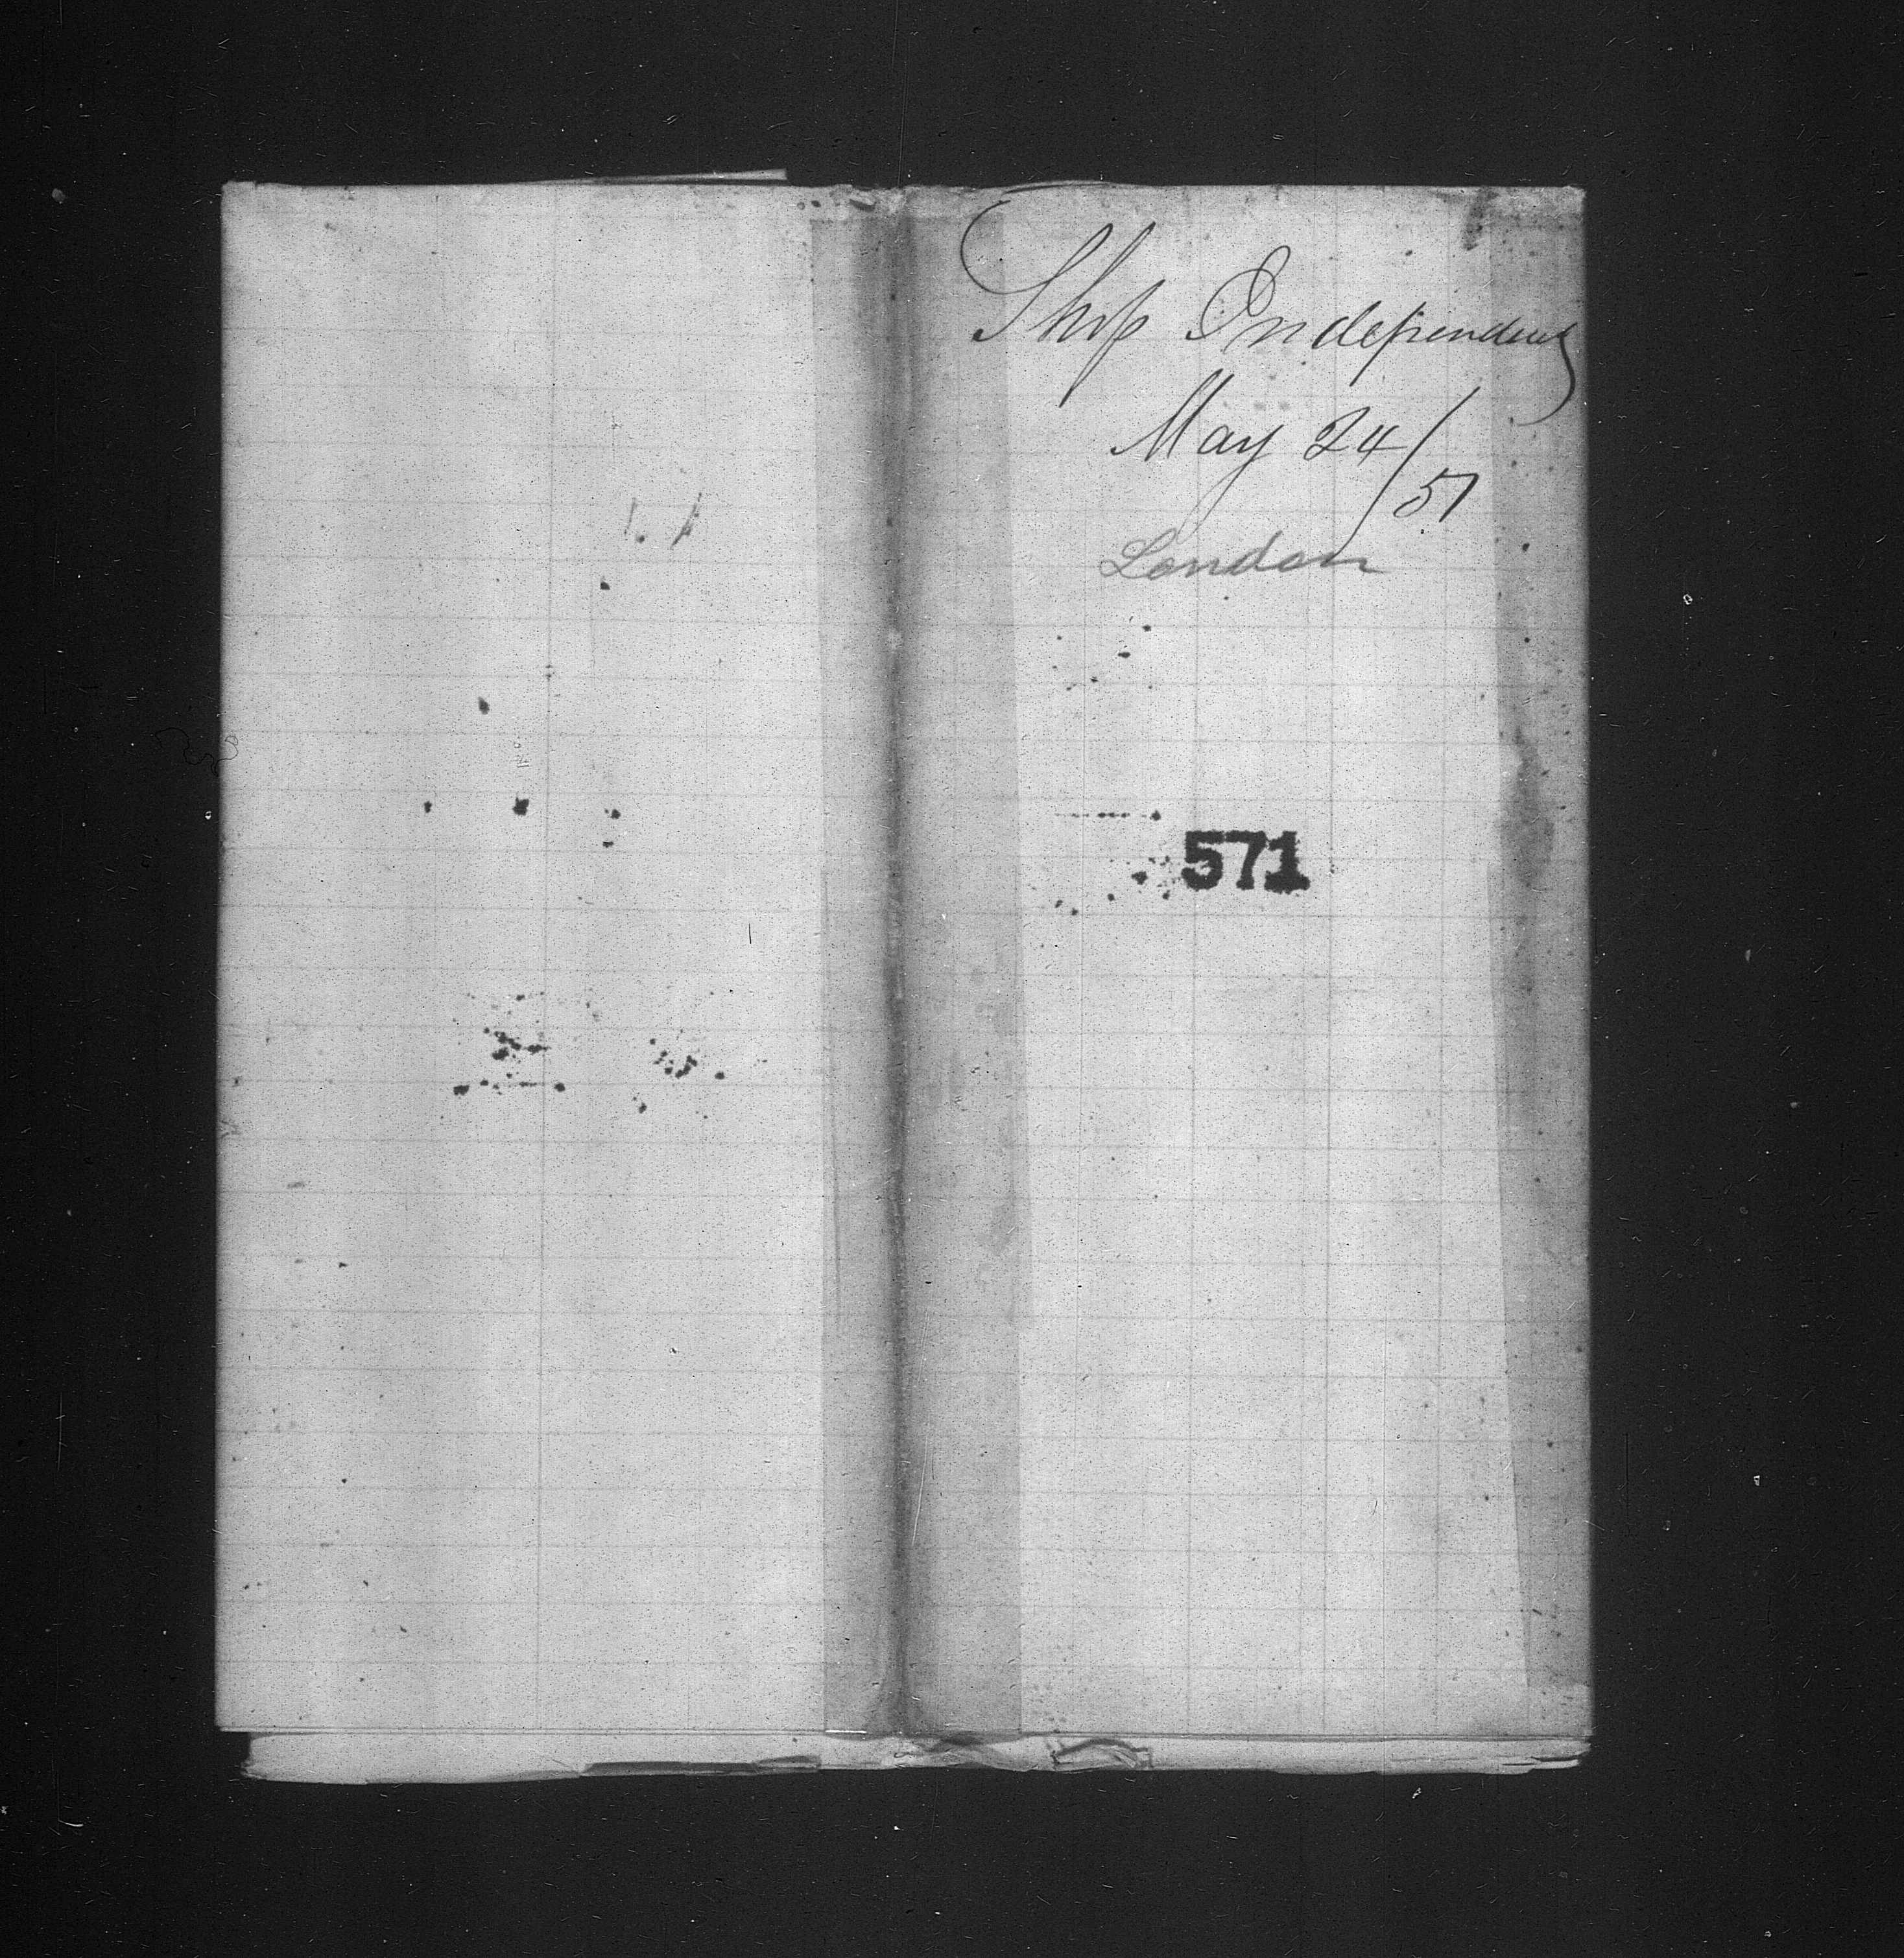 Ship Independence
May 24/51
London
571